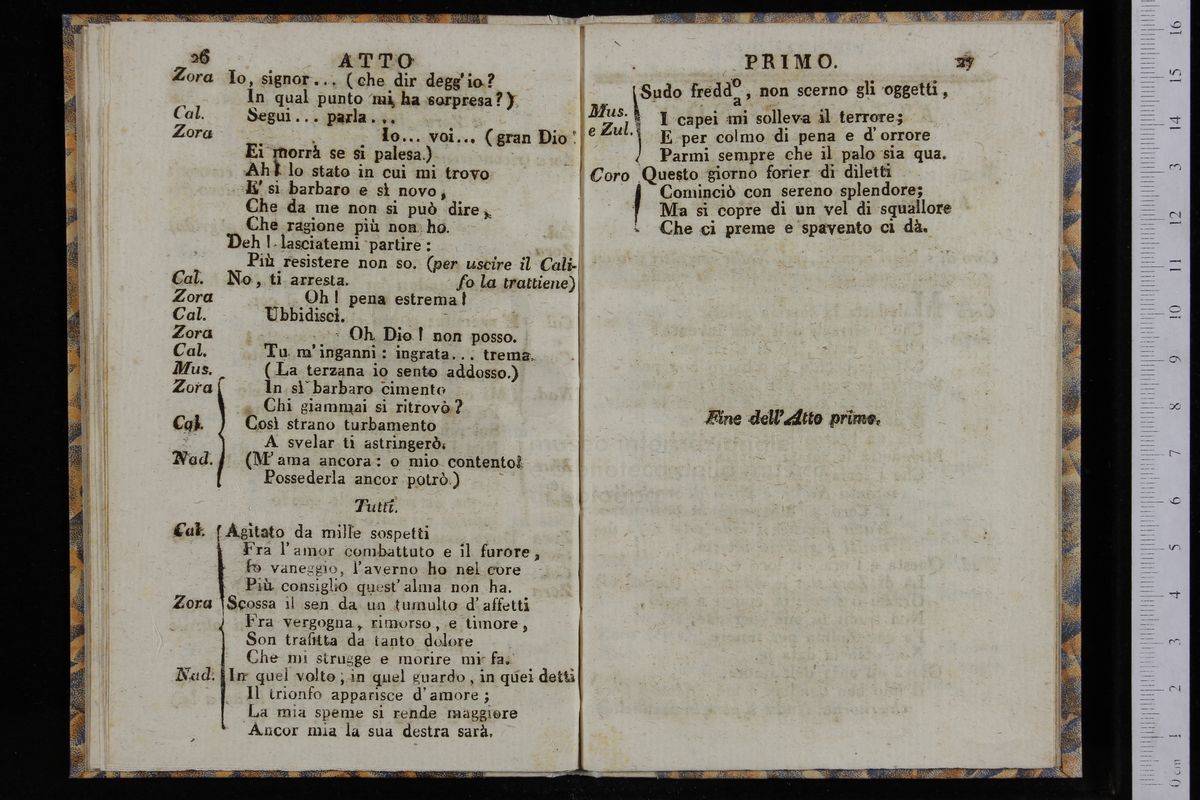 26
ATTO
Zora Io, signor... (che dir degg'io?
In qual punto mi ha sorpresa?)
Cal. Segui... parla...
Zora Io... voi... (gran Dio!
Ei morrà se si palesa.)
Ah! lo stato in cui mi trovo
E' sì barbaro e sì novo,
Che da me non si può dire,
Che ragione più non ho.
Deh! lasciatemi partire:
Più resistere non so. (per uscire il Cali-
Cal. No, ti arresta. fo la trattiene)
Zora Oh! pena estrema!
Cal. Ubbidisci.
Zora Oh Dio! non posso.
Cal. Tu m'inganni: ingrata... trema.
Mus. (La terzana io sento addosso.)
Zora In sì barbaro cimento
Chi giammai si ritrovò?
Cal. Così strano turbamento
A svelar ti astringerò.
Nad. (M'ama ancora: o mio contento!
Possederla ancor potrò.)
Tutti.
Cal. Agitato da mille sospetti
Fra l'amor combattuto e il furore,
Io vaneggio, l'averno ho nel core
Più consiglio quest'alma non ha.
Zora Scossa il sen da un tumulto d'affetti
Fra vergogna, rimorso, e timore,
Son trafitta da tanto dolore
Che mi strugge e morire mi fa.
Nad. In quel volto, in quel guardo, in quei detti
Il trionfo apparisce d'amore;
La mia speme si rende maggiore
Ancor mia la sua destra sarà.
PRIMO.
27
Sudo freddo/a, non scerno gli oggetti,
Mus. I capei mi solleva il terrore;
e Zul. E per colmo di pena e d'orrore
Parmi sempre che il palo sia qua.
Coro Questo giorno forier di diletti
Cominciò con sereno splendore;
Ma si copre di un vel di squallore
Che ci preme e spavento ci dà.
Fine dell'Atto primo.
0 cm 1 2 3 4 5 6 7 8 9 10 11 12 13 14 15 16